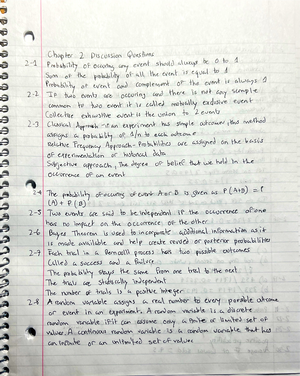 Chapter 2 Discussion Questions
2-1 Probability of occuring any event should always be 0 to 1
Sum of the probability of all the event is equal to 1
Probability of event and complement of the event is always 1
2-2 If two events are occuring and there is not any sample
common to two event it is called mutually exclusive event
Collective exhaustive event is the union to 2 events
2-3 Classical Approach- if an experiment has simple outcomes, this method
assigns a probability of 1/n to each outcome
Relative Frequency Approach- Probabilities are assigned on the basis
of experimentation or historical data
Subjective approach, the degree of belief that we hold in the
occurrence of an event
2-4 The probability of occuring of event A or B is given as P(A+B) = P
(A) + P(B)
2-5 Two events are said to be independent if the occurrence of one
has no impact on the occurrence of the other
2-6 Bayes Theorem is used to incorporate additional information as it
is made available and help create revised or posterior probabilities
2-7 Each trial in a Bernoulli process has two possible outcomes
Called a success and a failure
The probability stays the same from one trial to the next
The trials are statistically independent
The number of trials is a positive integer
2-8 A random variable assigns a real number to every possible outcome
or event in an experiment. A random variable is a discrete
random variable if it can assume only a finite or limited set of
values. A continuous random variable is a random variable that has
an infinite or an unlimited set of values